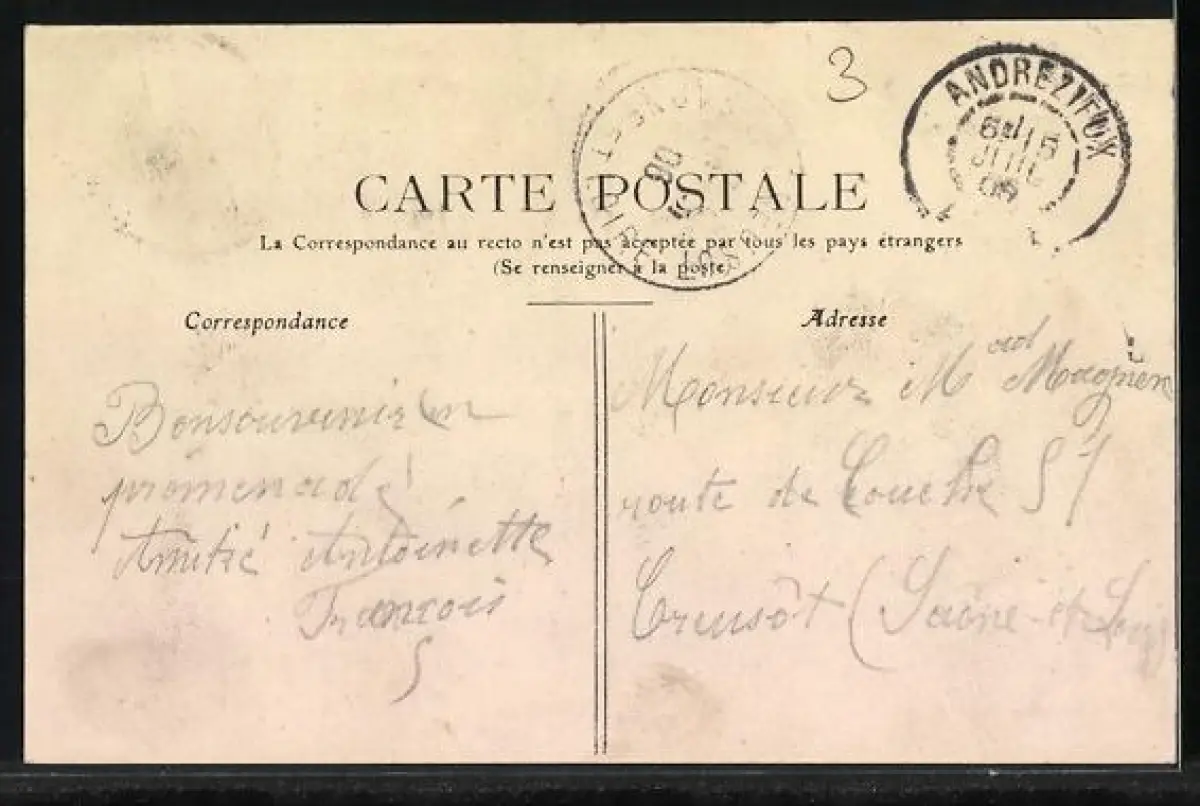 3
ANDREZIEUX
CARTE POSTALE
La Correspondance au recto n'est pas acceptée par tous les pays étrangers
(Se renseigner à la poste)
Correspondance
Bonsouvenir en
promenade
Amitié Antoinette
François
Adresse
Monsieur M Magnien
route de Couche 51
Creusôt (Saône-et-Loire)